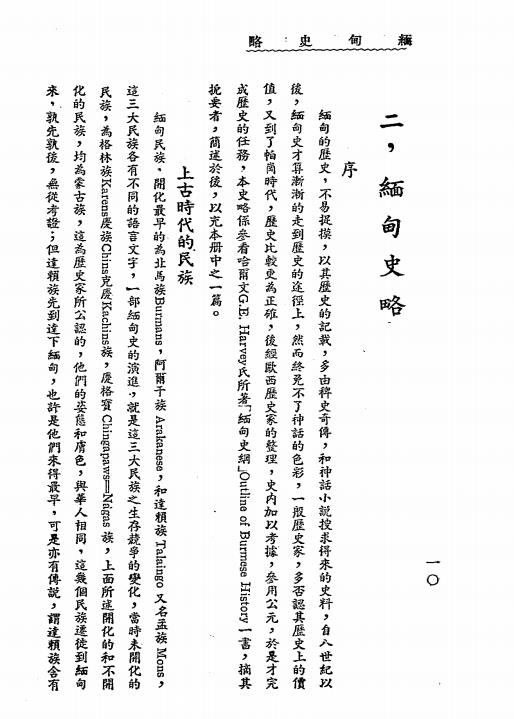 緬甸史略
一〇
二，緬甸史略
序
緬甸的歷史，不易捉摸，以其歷史的記載，多由稗史奇傳，和神話小説搜求得來的史料，自八世紀以
後，緬甸史才算漸漸的走到歷史的途徑上，然而終免不了神話的色彩，一般歷史家，多否認其歷史上的價
值，又到了怕崗時代，歷史比較更為正確，後經歐西歷史家的整理，史内加以考據，參用公元，於是才完
成歷史的任務，本史略係參看哈爾文G.E. Harvey氏所著「緬甸史綱」Outline of Burmese History一書，摘其
扼要者，簡述於後，以充本册中之一篇。
上古時代的民族
緬甸民族，開化最早的為北馬族Burmans，阿爾干族 Arakanese，和達賴族Talaingo又名孟族Mons，
這三大民族各有不同的語言文字，一部緬甸史的演進，就是這三大民族之生存競爭的變化，當時未開化的
民族，為格林族Karens慶族Chins克慶Kachins族，慶格寶Chingapaws＝Nagas 族，上面所述開化的和不開
化的民族，均為蒙古族，這為歷史家所公認的，他們的姿態和膚色，與華人相同，這幾個民族遷徒到緬甸
來，孰先孰後，無從考證；但達賴族先到達下緬甸，也許是他們來得最早，可是亦有傳説，謂達賴族含有